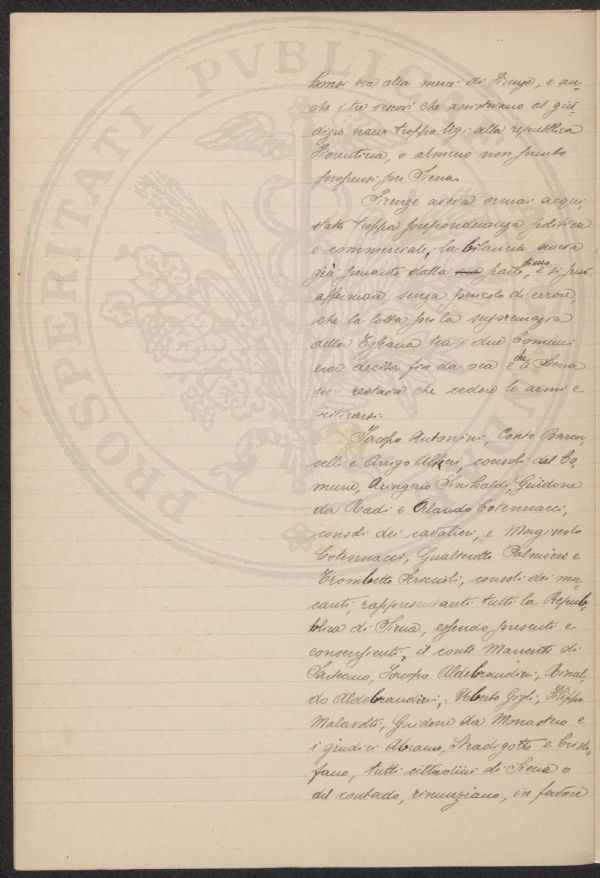 bonsi era alla mercè di Firenze, e an=
che i tre vescovi che assistevano al giu=
dizio erano troppo ligi alla repubblica
Fiorentina, o almeno non punto
propensi per Siena.
Firenze aveva ormai acqui
stata troppa preponderanza politica
e commerciale, la bilancia aveva
già penduto dalla parte di essa, e si può
affermare senza pericolo di errore
che la lotta per la supremazia
della Toscana tra i due Comuni
era decisa fin da ora e che a Siena
restava che cedere le armi e
ritirarsi.
Jacopo Antonini, Conte Baron
celli e Arrigo Alberi, consoli del Co=
mune, Aringerio Sinibaldi, Guidone
da Radi e Orlando Cotennacci,
consoli dei cavalieri, e Magiscolo
Cotennacci, Gualterotto Palmieri e
Trombetto consoli dei mer=
canti, rappresentanti tutti la Repub=
blica di Siena, essendo presenti e
consenzienti il conte Manente di
Sarteano, Jacopo Aldebrandini, Rinal=
do Aldebrandini, Uberto Gigli, Filippo
Malavolti, Guidone da Monastero e
i giudici Abramo, Stradigotto e Cristo=
fano, tutti cittadini di Siena o
del contado, rinunziano, in favore
PROSPERITATI PVBLICAE